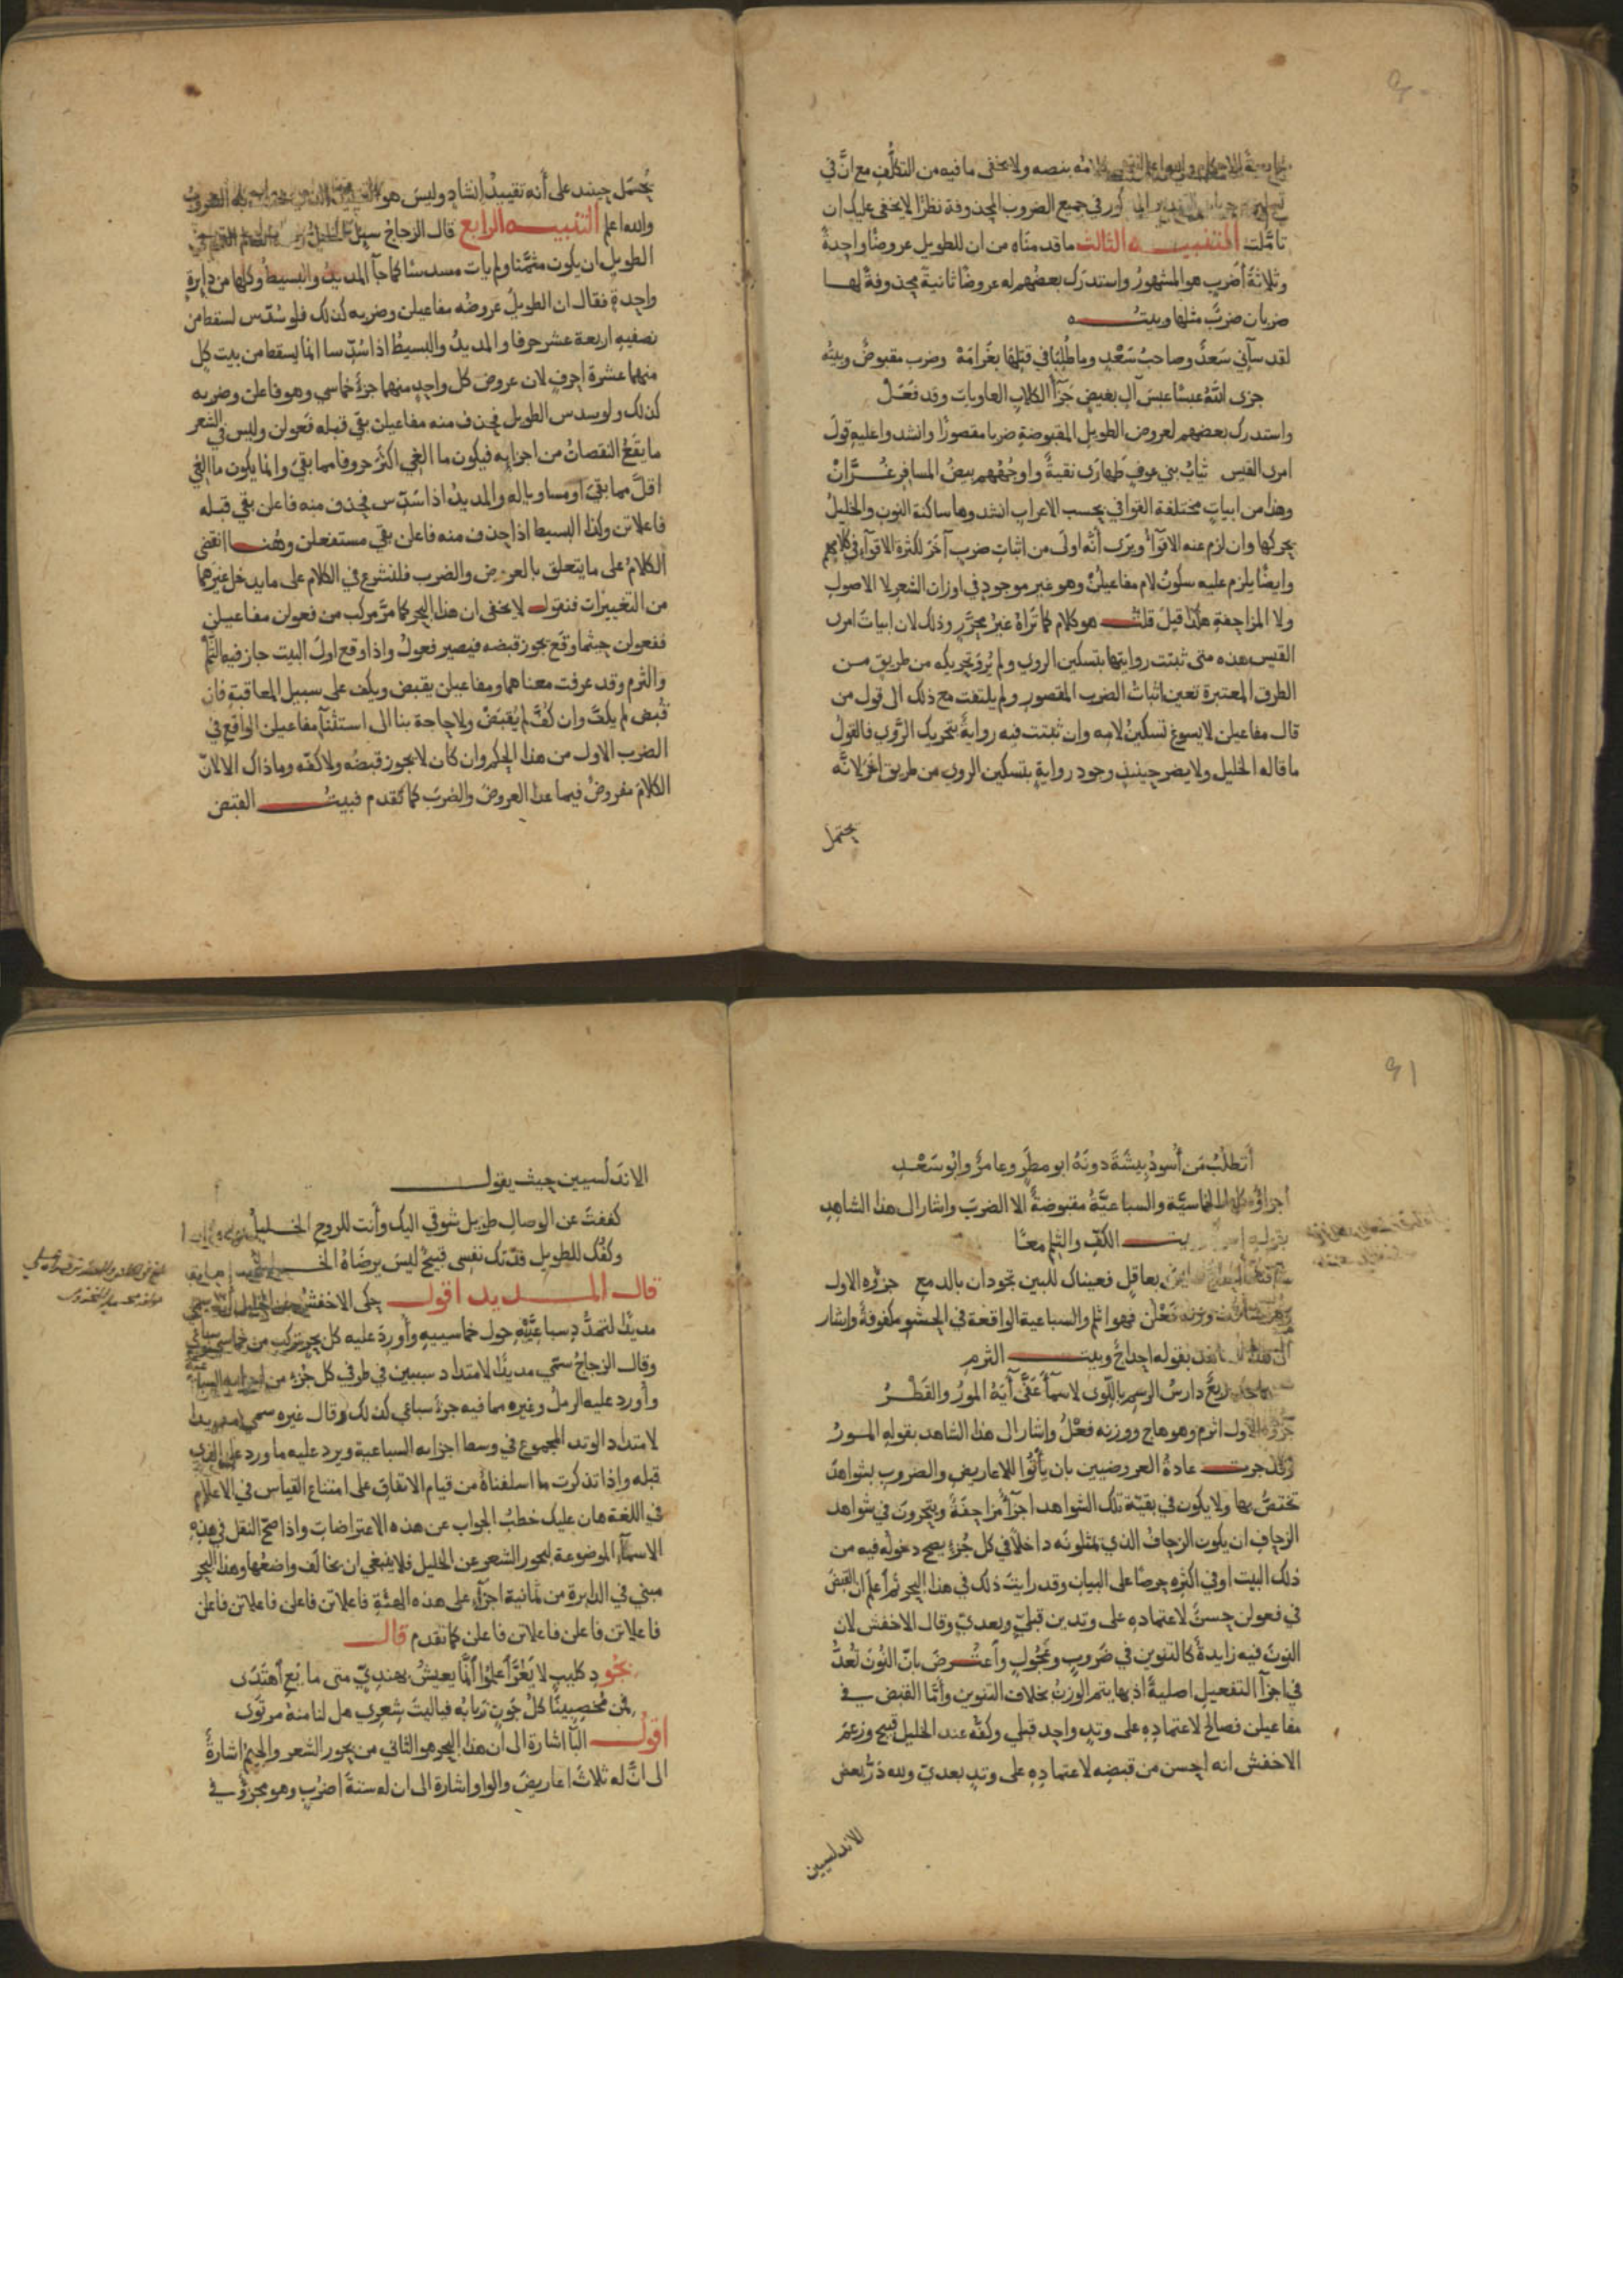 كلامه بنصه ولا يخفى ما فيه من التكلُّفِ مع انَّ في
في جميع الضروب المحذوفة نظرًا لا يخفى عليك ان
تأمَّلت التنبيه الثالث ما قدمناه من ان للطويل عروضًا واحدةً
وثلاثةَ أضربٍ هو المشهورُ واستدرَك بعضهم له عروضًا ثانيةً محذوفةً لها
ضربان ضربٌ مثلها وبيتُه
لقد سآني سَعدٌ وصاحبُ سَعْدٍ وما طُلِبَا في قتلِهَا بغَرامَهْ وضرب مقبوضٌ وبيتُه
جزى اللهُ عبسًا عبسَ آلِ بغيضٍ جَزآءَ الكلابِ العاوياتِ وقد فعَلْ
واستدرك بعضهم لعروض الطويل المقبوضةِ ضربا مقصورًا وانشد واعليه قولَ
امرى القيس ثيابُ بني عوفٍ طَهارَى نقيةٌ واوجُهُهم بيضُ المسافرِ غُرَّانْ
وهذا من ابياتٍ مختلفة القوافي بحسب الاعراب انشدوها ساكنة النون والخليلُ
يحركها وان لزم عنه الاقوآءُ ويرَى أنَّه اولَى من اثباتِ ضربٍ آخَرَ لكثرة الاقوآءِ في كلامهم
وايضًا يلزم عليه سكونُ لام مفاعيلُنْ وهو غير موجودٍ في اوزان الشعر لا الاصولِ
ولا المزاحفةِ هكذا قيلَ قلتُ هو كلام كما تَرَاهُ غيرُ محرَّرٍ وذلك لان ابياتَ امرى
القيس هذه متى ثبتت روايتها بتسكين الروى ولم يُروَ تحريكه من طريق من
الطرق المعتبرة تعين اثباتُ الضربِ المقصورِ ولم يلتفت مع ذلك الى قول من
قال مفاعيلن لا يسوغ تسكينُ لامِه وان ثبتت فيه روايةٌ بتحريك الرَّوى فالقولُ
ما قاله الخليل ولا يضر حينئذٍ وجود روايةٍ بتسكين الروى من طريق اخرَى لانَّه
يحتمل
يُحتمَل حينئذ على أنه تقييدُ إنشادٍ وليسَ هو
والله اعلم التنبيه الرابع قال الزجاجُ سيلَ الخليلُ
الطويل ان يكون مثمَّنا ولم يات مسدسًا كما جآءَ المديدُ والبسيطُ وكلها من دايرةٍ
واحدةٍ فقال ان الطويلَ عروضُه مفاعيلن وضربه كذلك فلو سُدّس لسقط من
نصفيهِ اربعة عشر حرفا والمديدُ والبسيطُ اذا سُدِّسا انما يسقط من بيت كل
منهما عشرة احرفٍ لان عروضَ كل واحدٍ منهما جزءٌ خماسي وهو فاعلن وضربه
كذلك ولو سدس الطويل فحذف منه مفاعيلن بقي قبله فَعولن وليس في الشعر
ما يقَعُ النقصانُ من اجزايِه فيكون ما القي اكثرُ حروفا مما بقيَ وانما يكون ما القيَ
اقلَّ مما بقيَ او مساويا له والمديدُ اذا سُدّس فحذف منه فاعلن بقي قبله
فاعلاتن وكذا البسيط اذا حذف منه فاعلن بقي مستفعلن وهُنا انقضى
الكلامُ على ما يتعلق بالعروض والضرب فلنشرع في الكلام على ما يدخل غيرَهما
من التغييرَات فنقول لا يخفى ان هذا البحر كما مرَّ مركب من فعولن مفاعيلن
ففعولن حيثما وقع يجوز قبضه فيصير فعولُ واذا وقع اولَ البيت جاز فيه الثَّلْمُ
والثرم وقد عرفت معناهما ومفاعيلن يقبض ويكف على سبيل المعاقبةِ فان
قُبض لم يكفَّ وان كُفَّ لم يُقبَضْ ولا حاجة بنا الى استثنآء مفاعيلن الواقع في
الضرب الاول من هذا الحكم وان كان لا يجوز قبضُه ولا كفّه وما ذاك الا لانّ
الكلامَ مفروضٌ فيما عدا العروضَ والضربَ كما تقدم فبيتُ القبض
٩١
أتطلُبُ مَن أُسودُ بِيشَةَ دونَهُ ابو مطَرٍ وعامرٌ وابُو سَعْدِ
اجزاؤه كلها الخماسيَّة والسباعيَّةُ مقبوضةٌ الا الضربَ واشار الى هذا الشاهدِ
بقوله بيت الكفّ والثلم معًا
بعاقِلٍ فعيناك للبين تجودان بالدمعِ جزؤه الاول
وزنه فَعْلن فهو اثلم والسباعية الواقعة في الحشو مكفوفةٌ واشار
بقوله احداجُ وبيت الثرمِ
هاجك ربعٌ دارسُ الرسمِ باللّوَى لاسمآءَ عَفَّى آيَهُ المورُ والقَطْرُ
جزؤه الاول اثرم وهو هاج ووزنه فعْلُ واشار الى هذا الشاهد بقوله المورُ
وقد جرت عادةُ العروضيين بان يأتُوا للاعاريضِ والضروبِ بشواهدَ
تختصُّ بها ولا يكون في بقيَّة تلك الشواهد اجزآءٌ مزاحفةٌ ويتحرونَ في شواهد
الزحافِ ان يكون الزحافُ الذي يمثلونَه داخلاً في كل جُزءٍ يصح دخولُه فيه من
ذلك البيت او في اكثرِه حرصًا على البيان وقد رايتَ ذلك في هذا البحر ثم أعلم ان القبض
في فعولن حسنٌ لاعتمادِه على وتدين قبليٍّ وبعديّ وقال الاخفش لان
النونَ فيه زايدةٌ كالتنوين في ضَروبٍ وعَجُولٍ وأعتُرضَ بانّ النُّونَ تُعدُّ
في اجزآءِ التفعيل اصليةً اذ بها يتم الوزنُ بخلاف التنوين وأمَّا القبض في
مفاعيلن فصالح لاعتمادِه على وتدٍ واحدٍ قبلي وكفُّه عند الخليل قبيح وزعَمَ
الاخفش انه احسن من قبضِه لاعتمادِه على وتدٍ بعديّ ولله دَرُّ بعض
الاندلسيين
الاندَلُسيين حيث يقول
كففتَ عن الوصالِ طويل شوقي اليك وأنت للروح الخليلُ
وكفُّك للطويل فدَتك نفسِى قبيحٌ ليسَ يرضَاهُ الخليلُ
قال المديد اقول حكى الاخفش عن الخليل انه سمي
مديدًا لتمدُّدِ سباعيَّيْهِ حول خماسييهِ وأورِدَ عليه كل بحر تركب من خماسي وسباعي
وقال الزجاجُ سمّي مديدًا لامتداد سببين في طرفَي كل جُزءٍ من اجزايه السباعية
وأورد عليه الرملُ وغيره مما فيه جزءٌ سباعي كذلك وقال غيره سمي مديدا
لامتداد الوتد المجموع في وسط اجزايه السباعية ويرد عليه ما ورد على الذي
قبله واذا تذكرت ما اسلفناهُ من قيام الاتفاق على امتناع القياس في الاعلام
في اللغة هان عليك خطبُ الجواب عن هذه الاعتراضاتِ واذا صحّ النقل في هذِه
الاسمآءِ الموضوعة لبحور الشعر عن الخليل فلا ينبغي ان يخالَف واضعُها وهذا البحر
مبني في الدايرة من ثمانية اجزآءٍ على هذه الهيئةِ فاعلاتن فاعلن فاعلاتن فاعلن
فاعلاتن فاعلن فاعلاتن فاعلن كما تقدم قال
اقول البآءُ اشارةٌ الى ان هذا البحر هو الثاني من بحور الشعر والجيمُ اشارةٌ
الى انَّ له ثلاثَ اعاريضَ والواو اشارة الى ان له ستةَ اضربٍ وهو مجزوٌ في